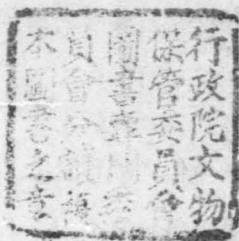 行政院文物
保管委員會
圖書專門委
員會
本圖書之章